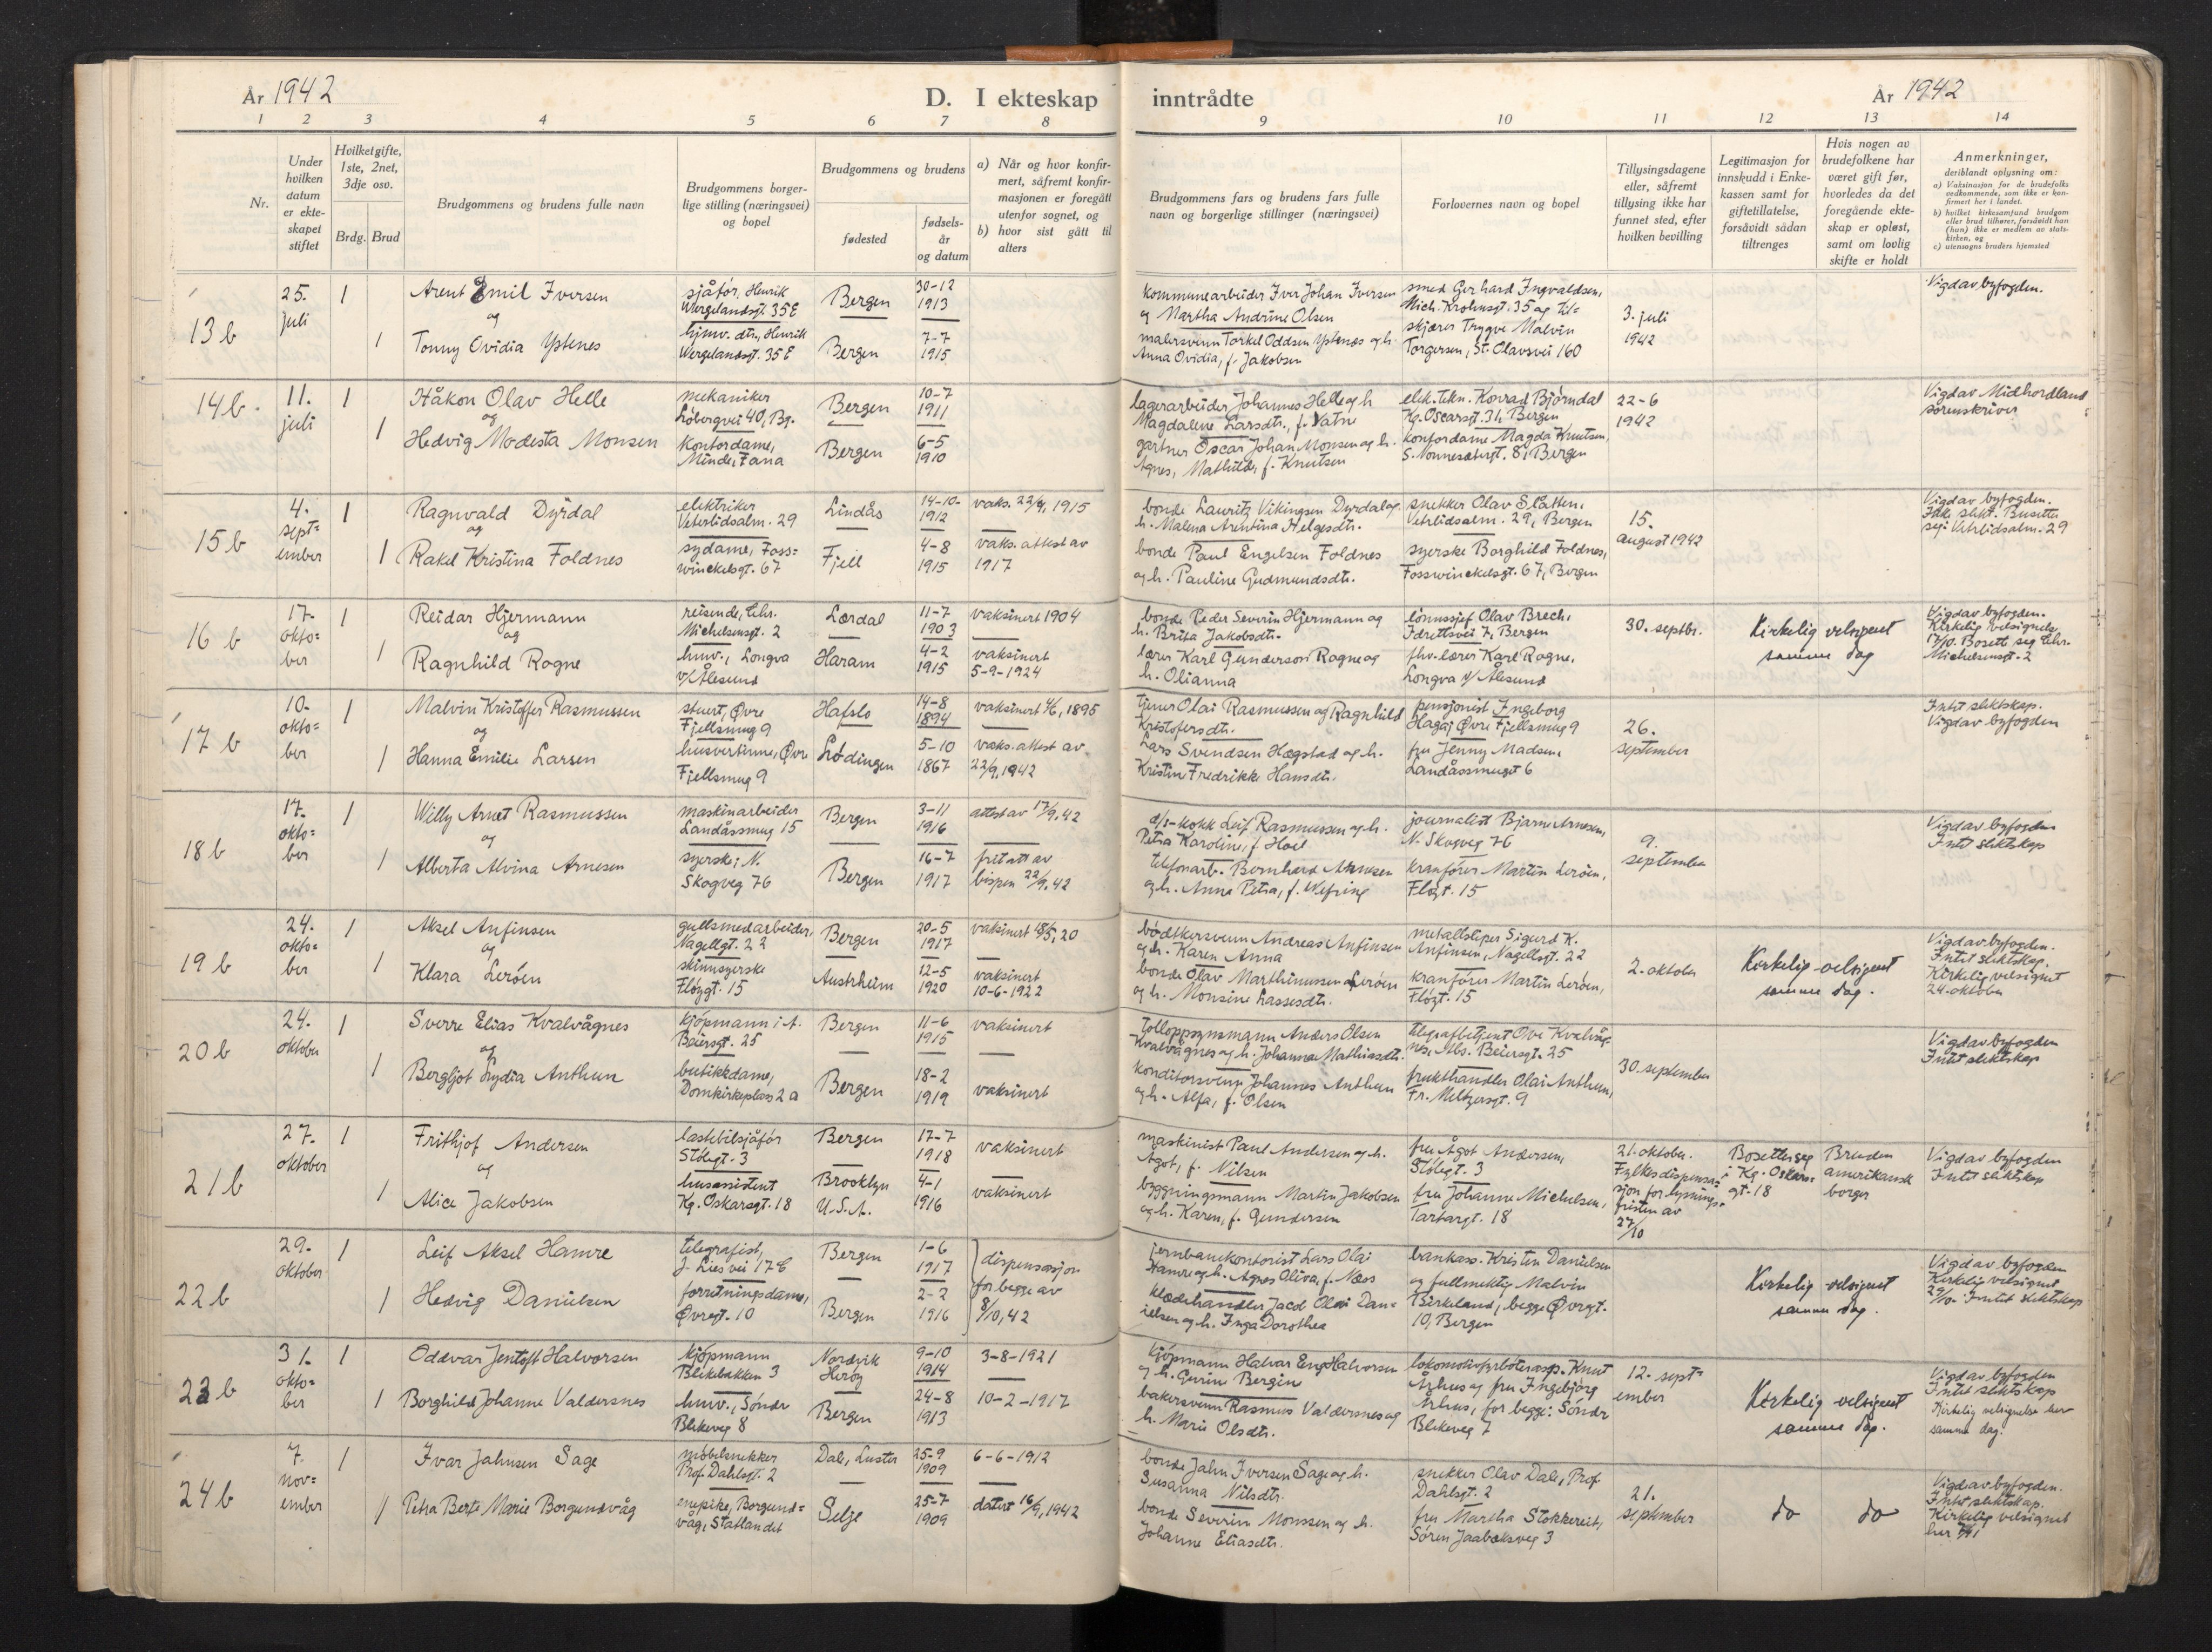 År 1942
D. I ekteskap
inntrådte
År 1942
1 2 3 4 5 6 7 8 9 10 11 12 13 14
Nr.
Under hvilken datum er ekteskapet stiftet
Hvilket gifte, 1ste, 2net, 3dje osv.
Brdg. Brud
Brudgommens og brudens fulle navn
Brudgommens borgerlige stilling (næringsvei) og bopel
Brudgommens og brudens
fødested
fødselsår og datum
a) Når og hvor konfirmert, såfremt konfirmasjonen er foregått utenfor sognet, og
b) hvor sist gått til alters
Brudgommens fars og brudens fars fulle navn og borgerlige stillinger (næringsvei)
Forlovernes navn og bopel
Tillysingsdagene eller, såfremt tillysing ikke har funnet sted, efter hvilken bevilling
Legitimasjon for innskudd i Enkekassen samt for giftetillatelse, forsåvidt sådan tiltrenges
Hvis nogen av brudefolkene har været gift før, hvorledes da det foregående ekteskap er opløst, samt om lovlig skifte er holdt
Anmerkninger, deriblandt oplysning om:
a) Vaksinasjon for de brudefolks vedkommende, som ikke er konfirmert her i landet.
b) hvilket kirkesamfund brudgom eller brud tilhører, forsåvidt han (hun) ikke er medlem av statskirken, og
c) utensogns bruders hjemsted
13 b
25. juli
1
Arent Emil Iversen
og
1
Tonny Ovidia Ystenes
sjåfør, Henrik
Wergelandsgt. 35 E
hjmv. dtr., Henrik
Wergelandsgt. 35 E
Bergen
Bergen
30-12
1913
7-7
1915
kommunearbeider Iver Johan Iversen
og Martha Andrine Olsen
malersvenn Torkel Oddsen Ystenes og h.
Anna Ovidia, f. Jakobsen
smed Gerhard Ingvaldsen,
Mich. Krohnsgt. 35 og til=
skjærer Trygve Malvin
Torgersen, St. Olavsvei 160
3. juli
1942
Vigd av byfogden.
14 b.
11. juli
1
Håkon Olav Helle
og
1
Hedvig Modesta Monsen
mekaniker
Løbergvei 40, Bg.
kontordame,
Minde, Fana
Bergen
Bergen
10-7
1911
6-5
1910
lagerarbeider Johannes Helle og h
Magdalene Larsdtr., f. Vatne
gartner Oscar Johan Monsen og h.
Agnes, Mathilde, f. Knutsen
elek. tekn. Konrad Bjørndal
Kg. Oscarsgt. 34 Bergen
kontordame Magda Knutsen,
S. Nonnesætergt. 8, Bergen
22-6
1942
Vigd av Midhordland
sorenskriver
15 b
4. sept=
ember
1
Ragnvald Dyrdal
og
1
Rakel Kristina Foldnes
elektriker
Veterlidsalm. 29
sydame, Foss=
winckelsgt. 67
Lindås
Fjell
14-10-
1912
4-8
1915
vaks. 22/9, 1915
vaks. attest av
1917
bonde Lauritz Vikingsen Dyrdal og
h. Malena Arentina Helgesdtr.
bonde Paul Engelsen Foldnes
og h. Pauline Gudmundsdtr.
snekker Olav Slåtten,
Vetrlidsalm. 29, Bergen
syerske Borghild Foldnes,
Fosswinckelsgt. 67, Bergen
15.
august 1942
Vigd av byfogden.
Ikke slekt. Busette
seg: Vetrlidsalm. 29
16 b
17. okto=
ber
1
Reidar Hjermann
og
1
Ragnhild Rogne
reisende, Chr.
Michelsensgt. 2
hmv., Longva
v/ Ålesund
Lærdal
Haram
11-7
1903
4-2
1915
vaksinert 1904
vaksinert
5-9-1924
bonde Peder Severin Hjermann og
h. Brita Jakobsdtr.
lærer Karl Gunderson Rogne og
h. Olianna
lønnssjef Olav Brech,
Idrettsvei 7, Bergen
fhv. lærer Karl Rogne,
Longva v/ Ålesund
30. septbr.
Kirkelig velsignet
samme dag
Vigd av byfogden.
Kirkelig velsignels
17/10. Bosett seg Chr.
Michelsensgt. 2
17 b
10. okto=
ber
1
Malvin Kristoffer Rasmussen
og
1
Hanna Emilie Larsen
stuert, Øvre
Fjellsmug 9
husvertinne, Øvre
Fjellsmug 9
Hafslo
Lødingen
14-8
1894
5-10
1867
vaksinert 4/6, 1895
vaks. attest av
22/9, 1942
tjener Olai Rasmussen og Ragnhild
Kristofersdtr.
Lars Svendsen Hægstad og h.
Kristin Fredrikke Hansdtr.
pensjonist Ingeborg
Haga, Øvre Fjellsmug 9
fru Jenny Madsen,
Landåssmuget 6
26.
september
Intet slektskap.
Vigd av byfogden
18 b
17. okto=
ber
1
Willy Arnet Rasmussen
og
1
Alberta Alvina Arnesen
maskinarbeider
Landåssmug 15
syerske, N.
Skogveg 76
Bergen
Bergen
3-11
1916
16-7
1917
attest av 17/9, 42
fritatt av
bispen 22/9, 42
d/s-kokk Leif Rasmussen og h.
Petra Karoline, f. Hoel
telefonarb. Bernhard Arnesen
og h. Anna Petra, f. Kefring
journalist Bjarne Arnesen,
N. Skogveg 76
kranfører Martin Lerøen,
Fløgt. 15
9.
september
Vigd av byfogden
Intet slektskap
19 b
24. okto=
ber
1
Aksel Anfinsen
og
1
Klara Lerøen
gullsmedarbeider,
Nagellgt. 22
skinnsyerske
Fløygt. 15
Bergen
Austrheim
20-5
1917
12-5
1920
vaksinert 18/5, 20
vaksinert
10-6-1922
bødtkersvenn Andreas Anfinsen
og h. Karen Anna
bonde Olav Marthinussen Lerøen
og h. Monsine Lassesdtr.
metallsliper Sigurd K.
Anfinsen, Nagellsgt. 22
kranfører Martin Lerøen,
Fløgt. 15
2. oktober
Kirkelig velsignet
samme dag.
Vigd av byfogden.
Intet slektskap.
Kirkelig velsignet
24. oktober
20 b
24.
oktober
1
Sverre Elias Kvalvågnes
og
1
Bergljot Lydia Anthun
kjøpmann i A.
Beiersgt. 25
butikkdame,
Domkirkeplass 2 a
Bergen
Bergen
11-6
1915
18-2
1919
vaksinert
vaksinert
tolloppsynsmann Anders Olsen
Kvalvågnes og h. Johanna Mathiasdtr.
konditorsvenn Johannes Anthun
og h. Alfa, f. Olsen
telegrafbetjent Ove Kvalvåg
nes, Abs. Beiersgt. 25
frukthandler Olai Anthun,
Fr. Meltzersgt. 9
30. september
Vigd av byfogden
Intet slektskap
21 b
27.
oktober
1
Frithjof Andersen
og
1
Alice Jakobsen
lastebilsjåfør
Stølegt. 3
husassistent
Kg. Oskarsgt. 18
Bergen
Brooklyn
U.S.A.
17-7
1918
4-1
1916
vaksinert
vaksinert
maskinist Paul Andersen og h.
Agot, f. Nilsen
bygningsmann Martin Jakobsen
og h. Karen, f. Gundersen
fru Ågot Andersen,
Stølegt. 3
fru Johanne Michelsen,
Tartargt. 18
21. oktober.
Fylkesdispensa=
sjon for lysnings=
fristen av
27/10
Bosetter seg
i Kg. Oskars=
gt. 18
Bruden
amerikansk
borger
Vigd av byfogden
Intet slektskap
22 b
29.
oktober
1
Leif Aksel Hamre
1
Hedvig Danielsen
telegrafist,
J. Lies vei 17 C
forretningsdame,
Øvregt. 10
Bergen
Bergen
1-6
1917
2-2
1916
dispensasjon
for begge av
8/10, 42
jernbanekontorist Lars Olai
Hamre og h. Agnes Oliva, f. Næss
klædehandler Jacob Olai Dan=
ielsen og h. Inga Dorothea
bankass. Kristen Danielsen
og fullmektig Malvin
Birkeland, begge Øvregt.
10, Bergen
Kirkelig velsignet
samme dag.
Vigd av byfogden
Kirkelig velsignet
29/10. Intet slektskap
23 b
31.
okto=
ber
1
Oddvar Jentoft Halvorsen
1
Borghild Johanne Valdersnes
kjøpmann
Blekebakken 3
hmv., Søndr
Blekeveg 8
Nordvik
Herøy
Bergen
9-10
1914
24-8
1913
3-8-1921
10-2-1917
kjøpmann Halvar Eng Halvorsen
og h. Gurine Bergine
bakersvenn Rasmus Valdersnes og
h. Marie Olsdtr.
lokomotivfyrbøterasp. Knut
Århus og fru Ingebjørg
Århus, for begge: Søndr
Blekeveg 7
12. sept=
ember
Kirkelig velsignet
samme dag.
Vigd av byfogden
Intet slektskap
Kirkelig velsignelse her
samme dag.
24 b
7.
nov=
ember
1
Ivar Jahnsen Sage
1
Petra Berte Marie Borgundvåg
møbelsnekker
Prof. Dahlsgt. 2
enepike, Borgund=
våg, Statlandet
Dale, Luster
Selje
25-9
1909
25-7
1909
6-6-1912
datert 16/9, 1942
bonde Jahn Iversen Sage og h.
Susanna Nilsdtr.
bonde Severin Monssen og h.
Johanne Eliasdtr.
snekker Olav Dale, Prof
Dahlsgt. 2
fru Martha Stokkereit,
Søren Jaabæksveg 3
21.
september
do
do
Vigd av byfogden.
Intet slektskap.
Kirkelig velsignet
her 7/11